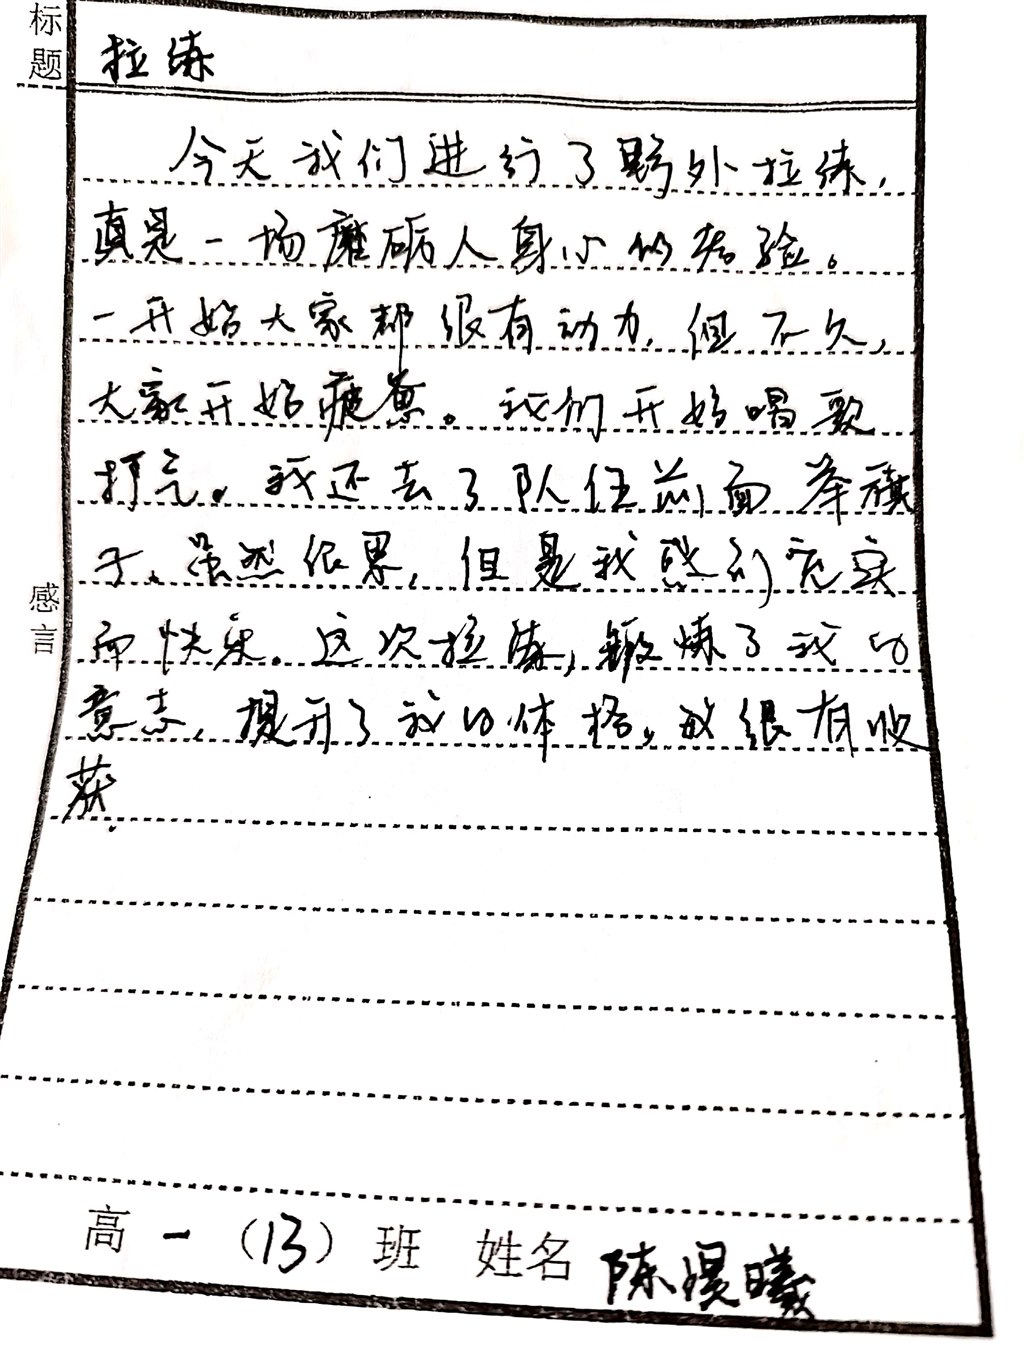 标题 拉练
今天我们进行了野外拉练,
真是一场磨砺人身心的考验。
一开始大家都很有动力,但不久,
大家开始疲惫。我们开始唱歌
打气。我还去了队伍前面举旗
子。虽然很累,但是我感到充实
而快乐。这次拉练,锻炼了我的
意志,提升了我的体格。我很有收
获.
感言
高一(13)班 姓名 陈 曦